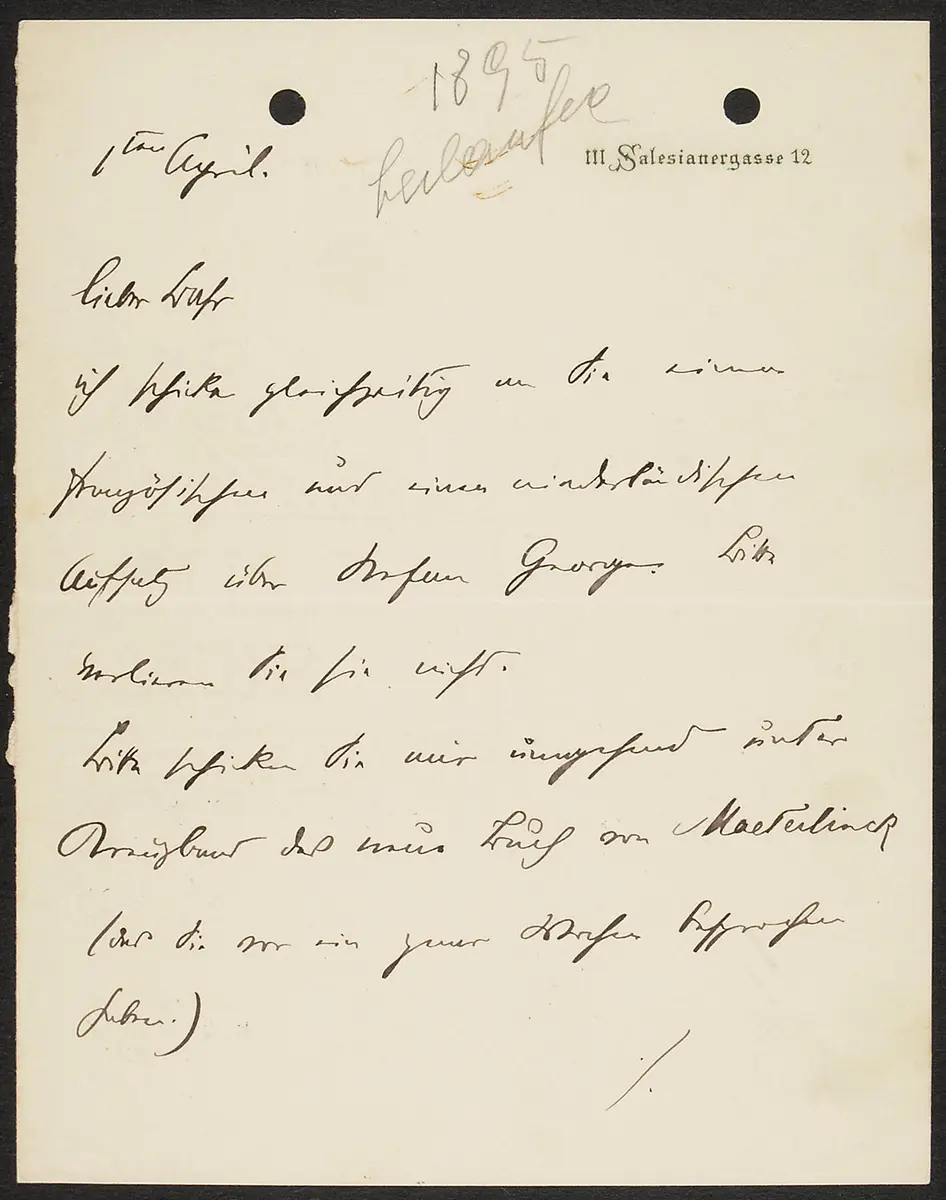 1895
1ten April.
III Salesianergasse 12
lieber Bahr
ich schicke gleichzeitig an Sie einen
französischen und einen niederländischen
Aufsatz über Stefan George. Bitte
verlieren Sie sie nicht.
Bitte schicken Sie mir umgehend unter
Kreuzband das neue Buch von Maeterlinck
(das Sie vor ein paar Wochen besprochen
haben.)
./.